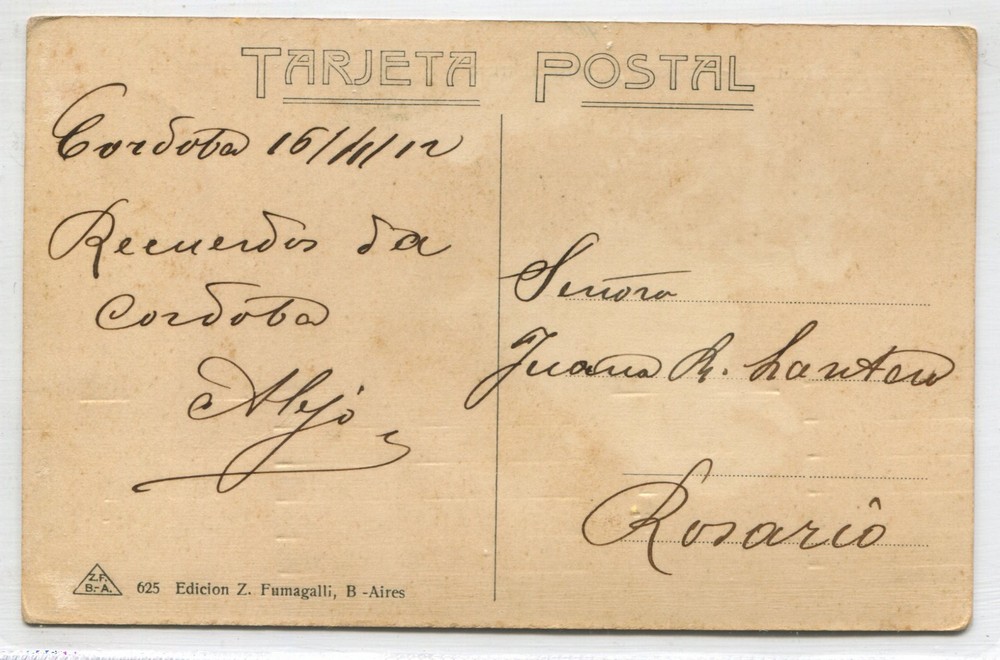 TARJETA POSTAL
Cordoba 16/11/12
Recuerdos da
Cordoba
Alejo
Señora
Juana R. Lantero
Rosario
Z.F.
B.-A.
625 Edicion Z. Fumagalli, B -Aires